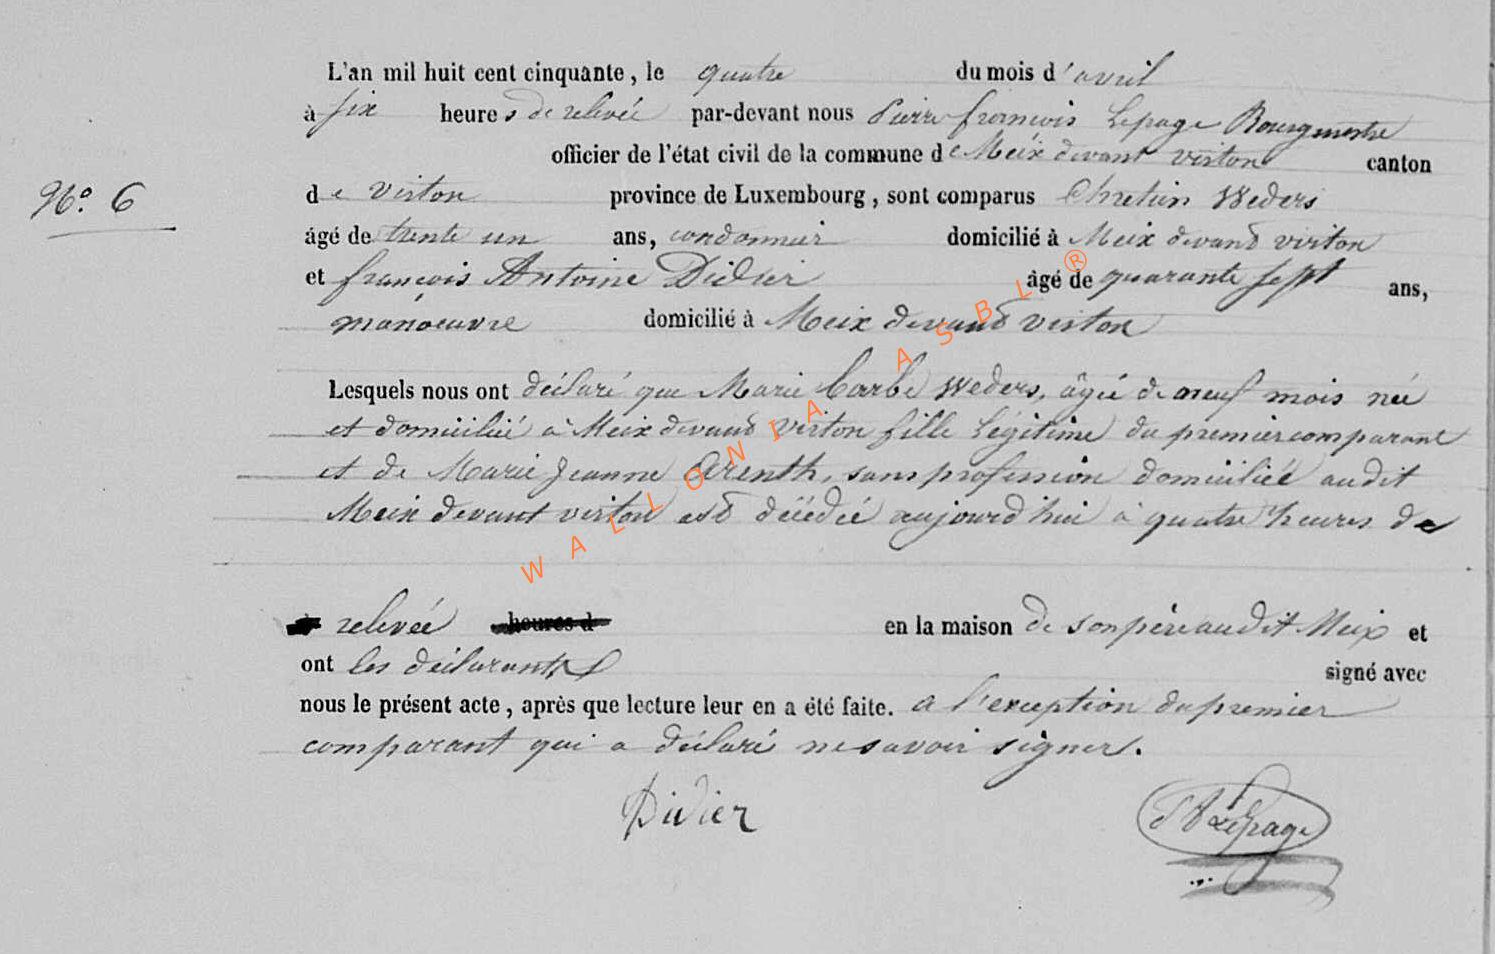 L'an mil huit cent cinquante, le quatre du mois d'avril
à six heures de relevée par-devant nous Pierre françois Lepage Bourgmestre
officier de l'état civil de la commune de Meix devant virton canton
N.o 6
de virton province de Luxembourg, sont comparus Chretien Weders
âgé de trente un ans, cordonnier domicilié à Meix devand virton
et françois Antoine Didier âgé de quarante sept ans,
manoeuvre domicilié à Meix devand virton
Lesquels nous ont déclaré que Marie barbe Weders, âgée de neuf mois née
et domiciliée à Meix devand virton fille légitime du premier comparant
et de Marie Jeanne Arenth, sans profession domiciliée audit
Meix devant virton est décédée aujourd'hui à quatre heures de
relevée heures d en la maison de son père audit Meix et
ont les déclarants signé avec
nous le présent acte, après que lecture leur en a été faite. a l'exception du premier
comparant qui a déclaré ne savoir signer.
Didier
Lepage
WALLONIA ASBL ®